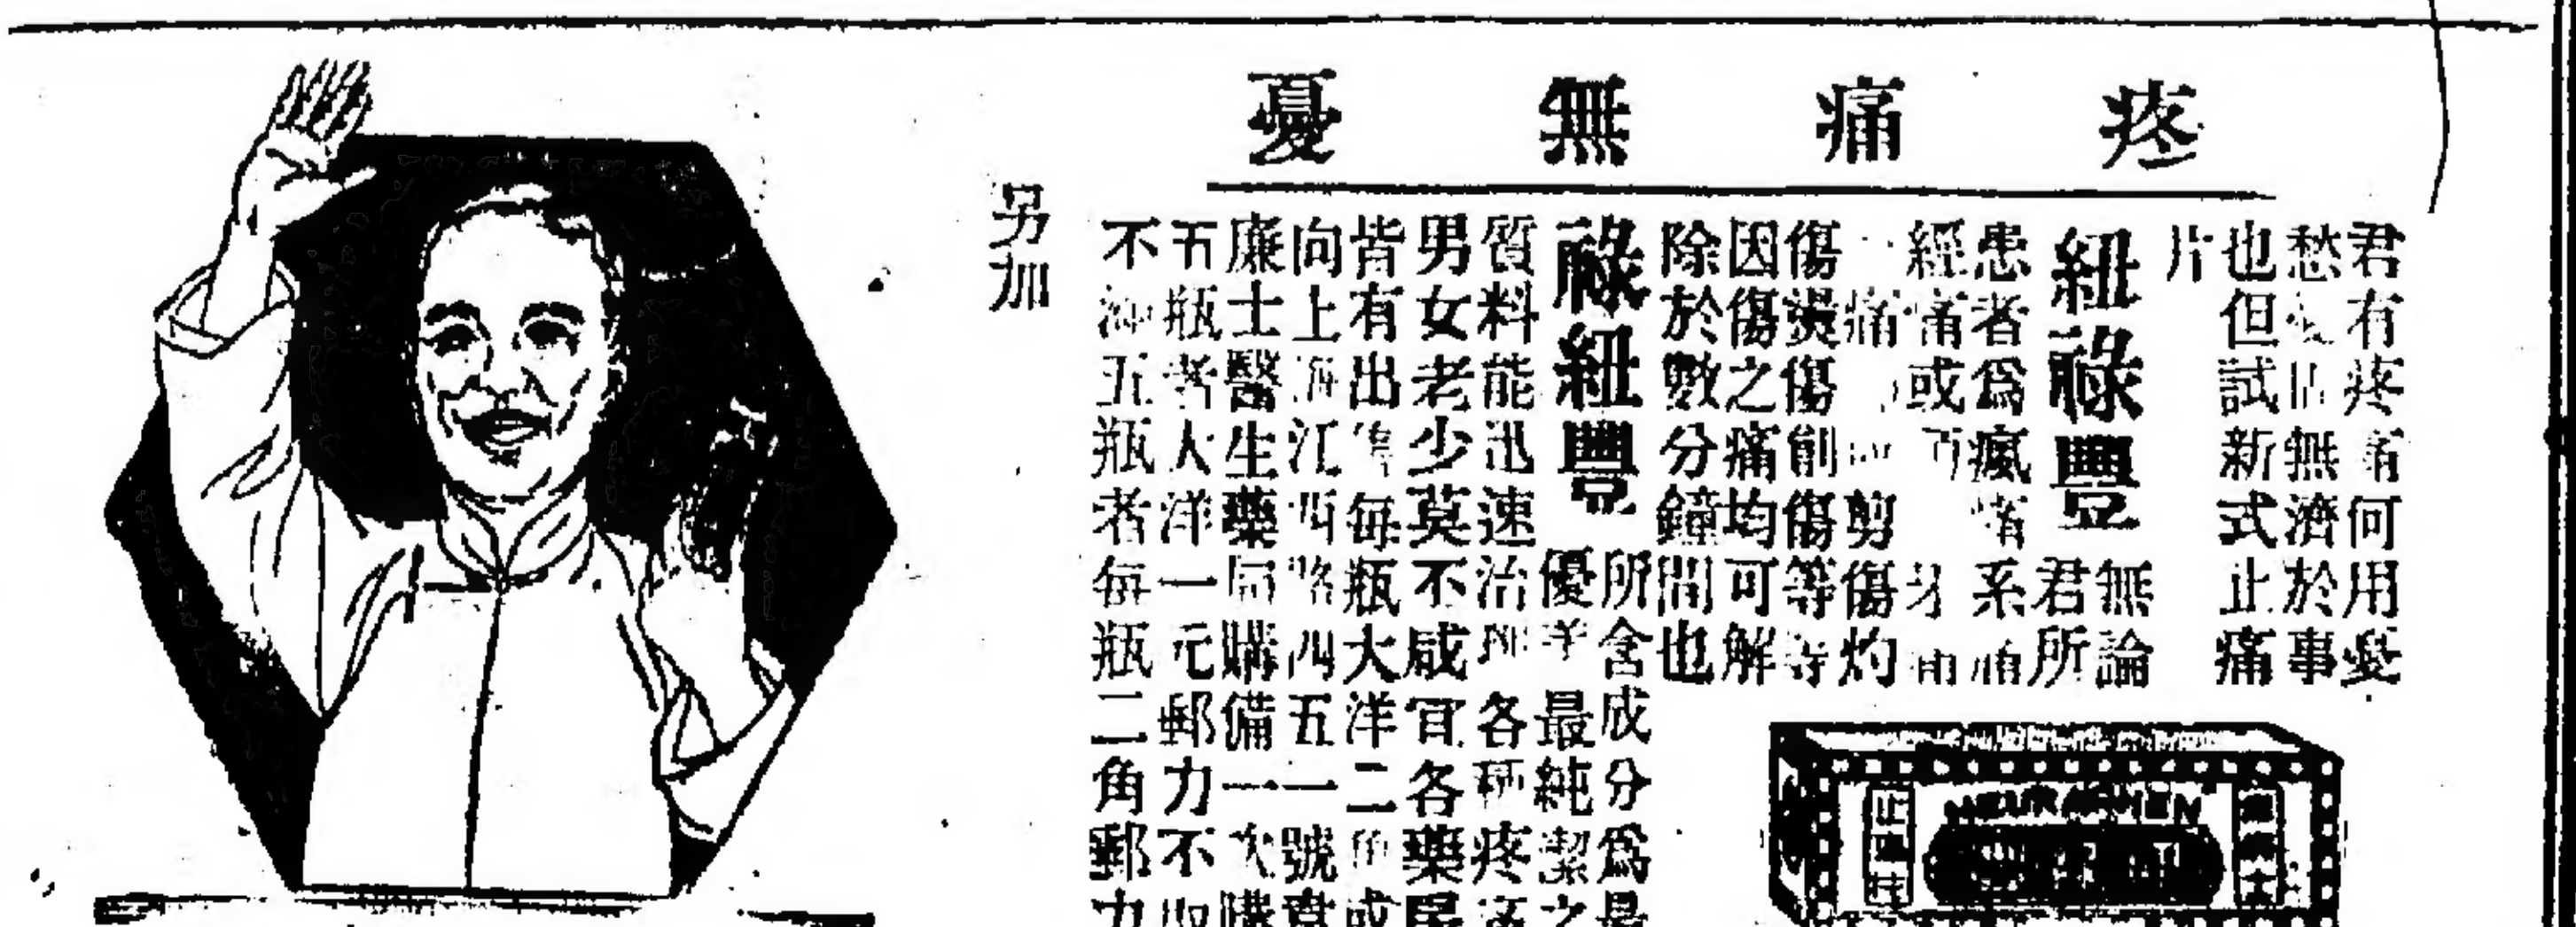 疼痛無憂
君有疼痛何用憂
愁 無濟於事
也但試新式止痛
片
紐祿豐 無論
君所
患者為瘋 系
經痛或 牙
痛 剪傷灼
傷燙傷創傷等
因傷之痛均可解
除於數分鐘間也
祿紐豐 所含成分為最
優 最純潔之
質料能迅速治 各種疼痛
男女老少莫不咸宜各藥房
皆有出售每瓶大洋二角或
向上海江西路四五一號韋
廉士醫生藥局購備一次購
五瓶者大洋一元郵力不取
不滿五瓶者每瓶二角郵力
另加
止痛